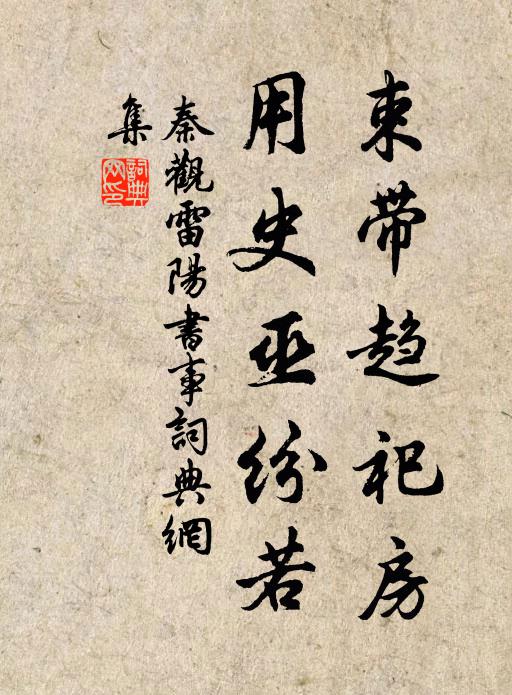 束帶趨祀房
用史巫紛若
秦觀雷陽書事詞典網
集
詞典網印